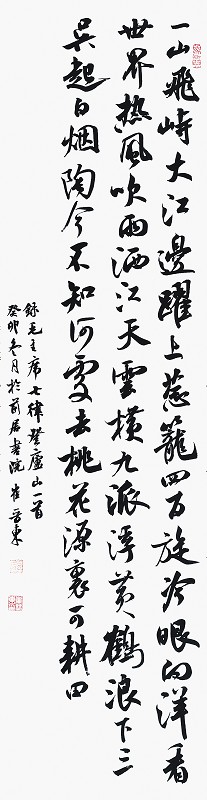 一山飛峙大江邊躍上葱籠四百旋冷眼向洋看
世界热風吹雨洒江天雲横九派浮黄鶴浪下三
吴起白烟陶令不知何處去桃花源裏可耕田
録毛主席七律登廬山一首
癸卯冬月於居書院 崔東